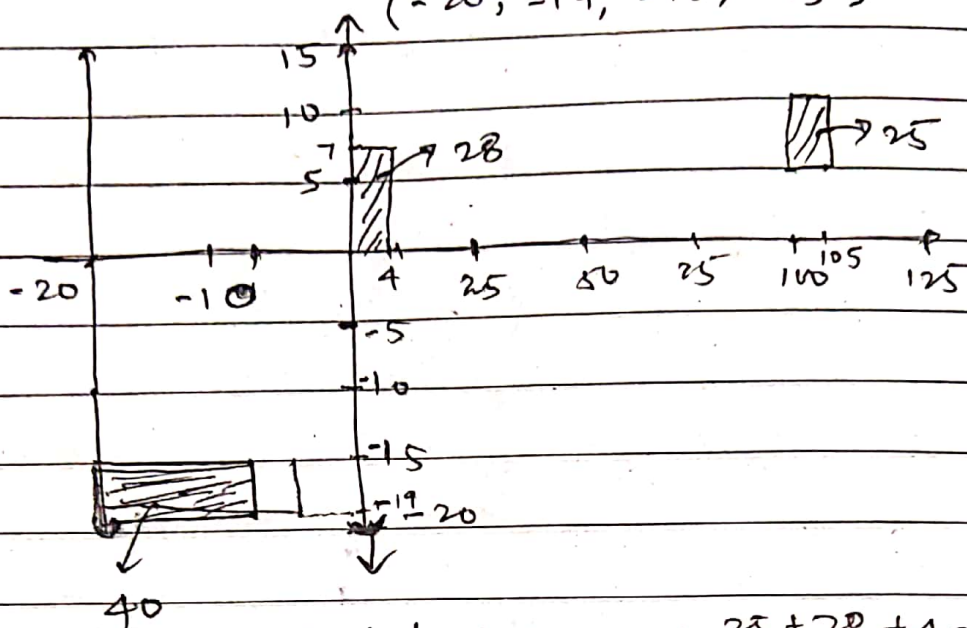 (-20, -19,
15
10
7
5
28
25
-20
-10
4
25
50
25
100
105
125
-5
-10
-15
-19
-20
40
25 + 28 + 4